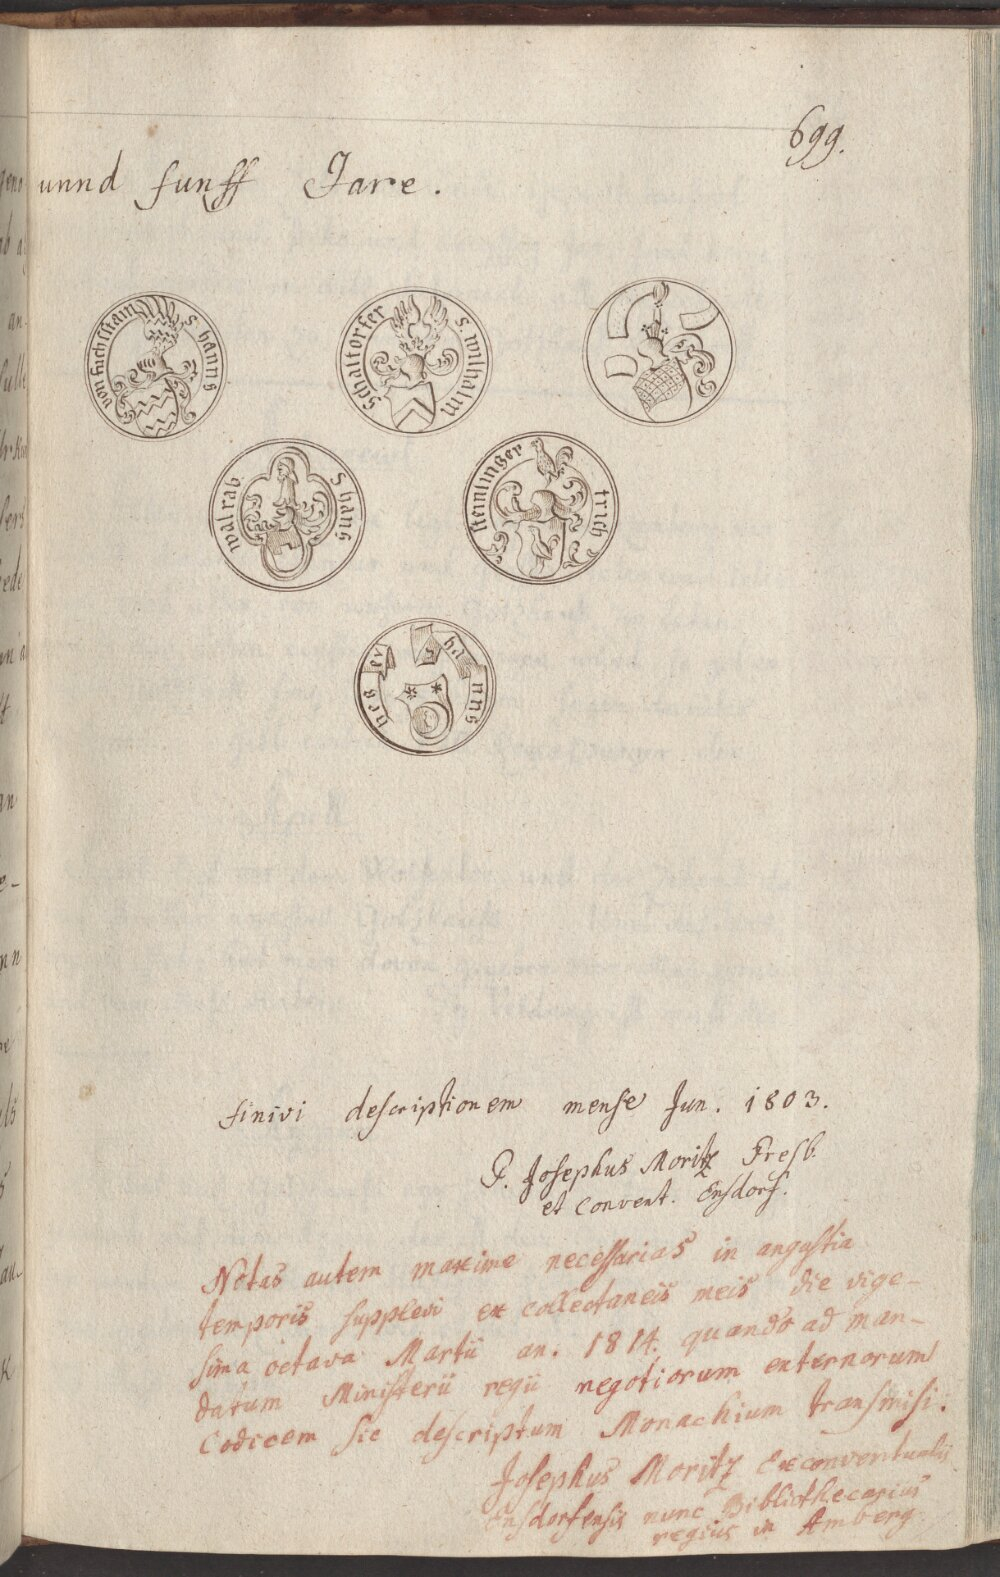 699.
unnd funff Jare.
s hanns von fuchsstain
s. wilhalm Schaltorfer
S hans malrab
trich steinlinger
s hanns
finivi descriptionem mense Jun. 1803.
P. Josephus Moritz Presb.
et Convent. Ensdorf.
Notas autem maxime necessarias in angustia
temporis supplevi ex collectaneis meis die vige-
sima octava Martii an. 1814. quando ad man-
datum Ministerii regii negotiorum externorum
Codicem sic descriptum Monachium transmisi.
Josephus Moritz Exconventualis
Ensdorfensis nunc Bibliothecarius
regius in Amberg